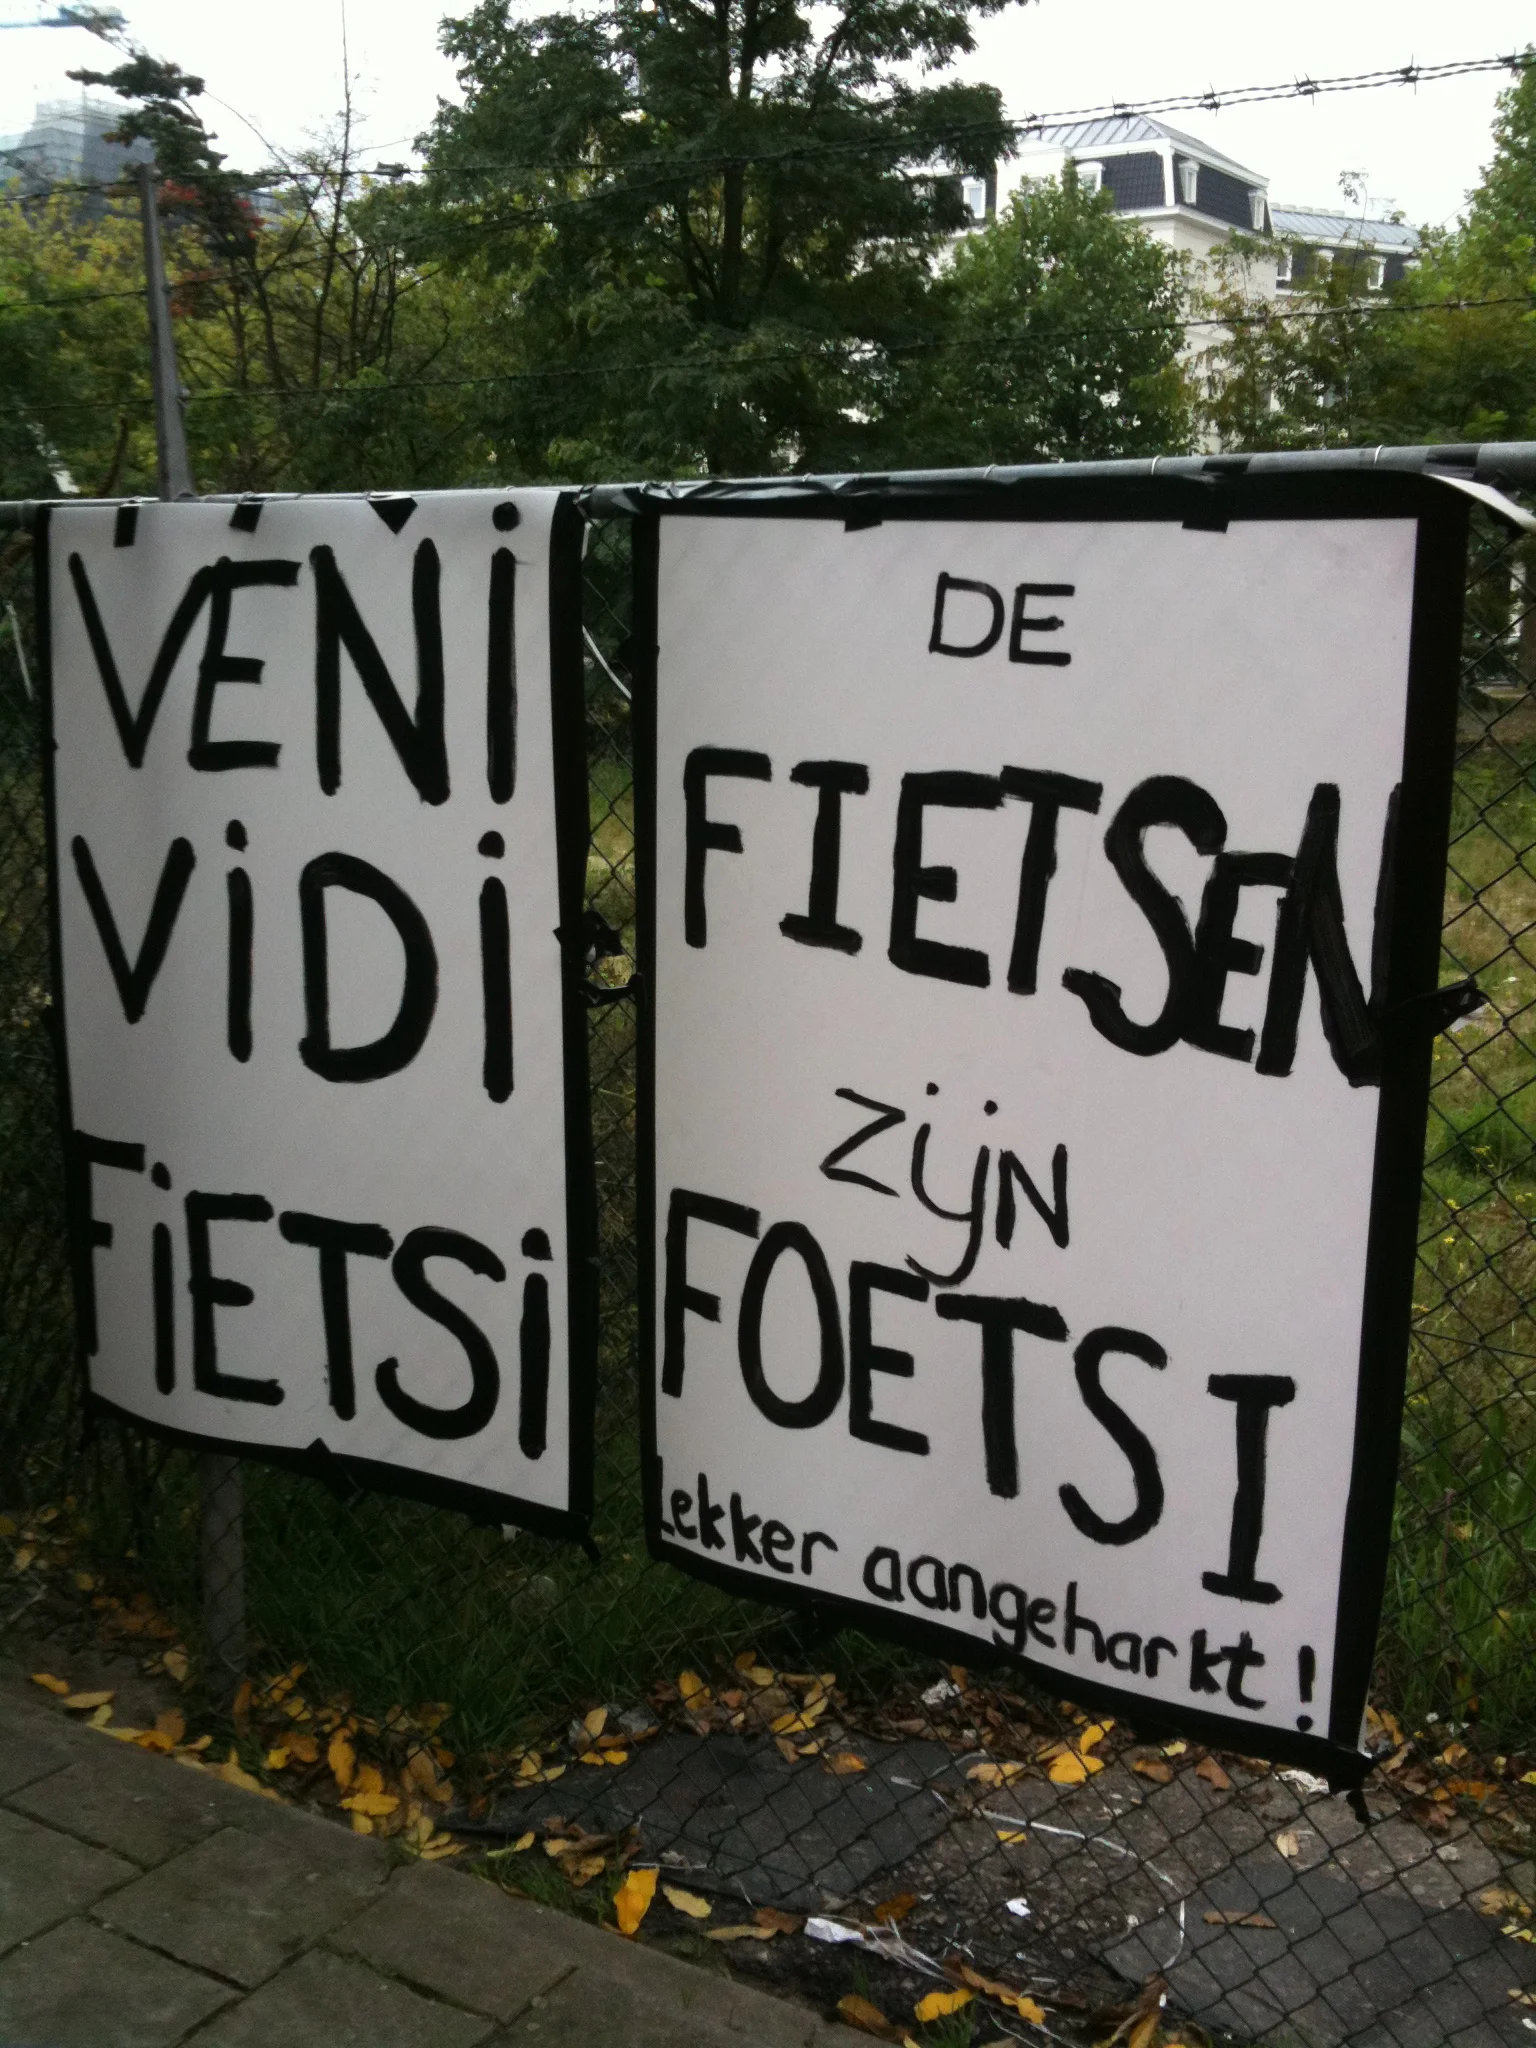 VENI
ViDi
FiETSi
DE
FIETSEN
zijn
FOETSI
Lekker aangeharkt!